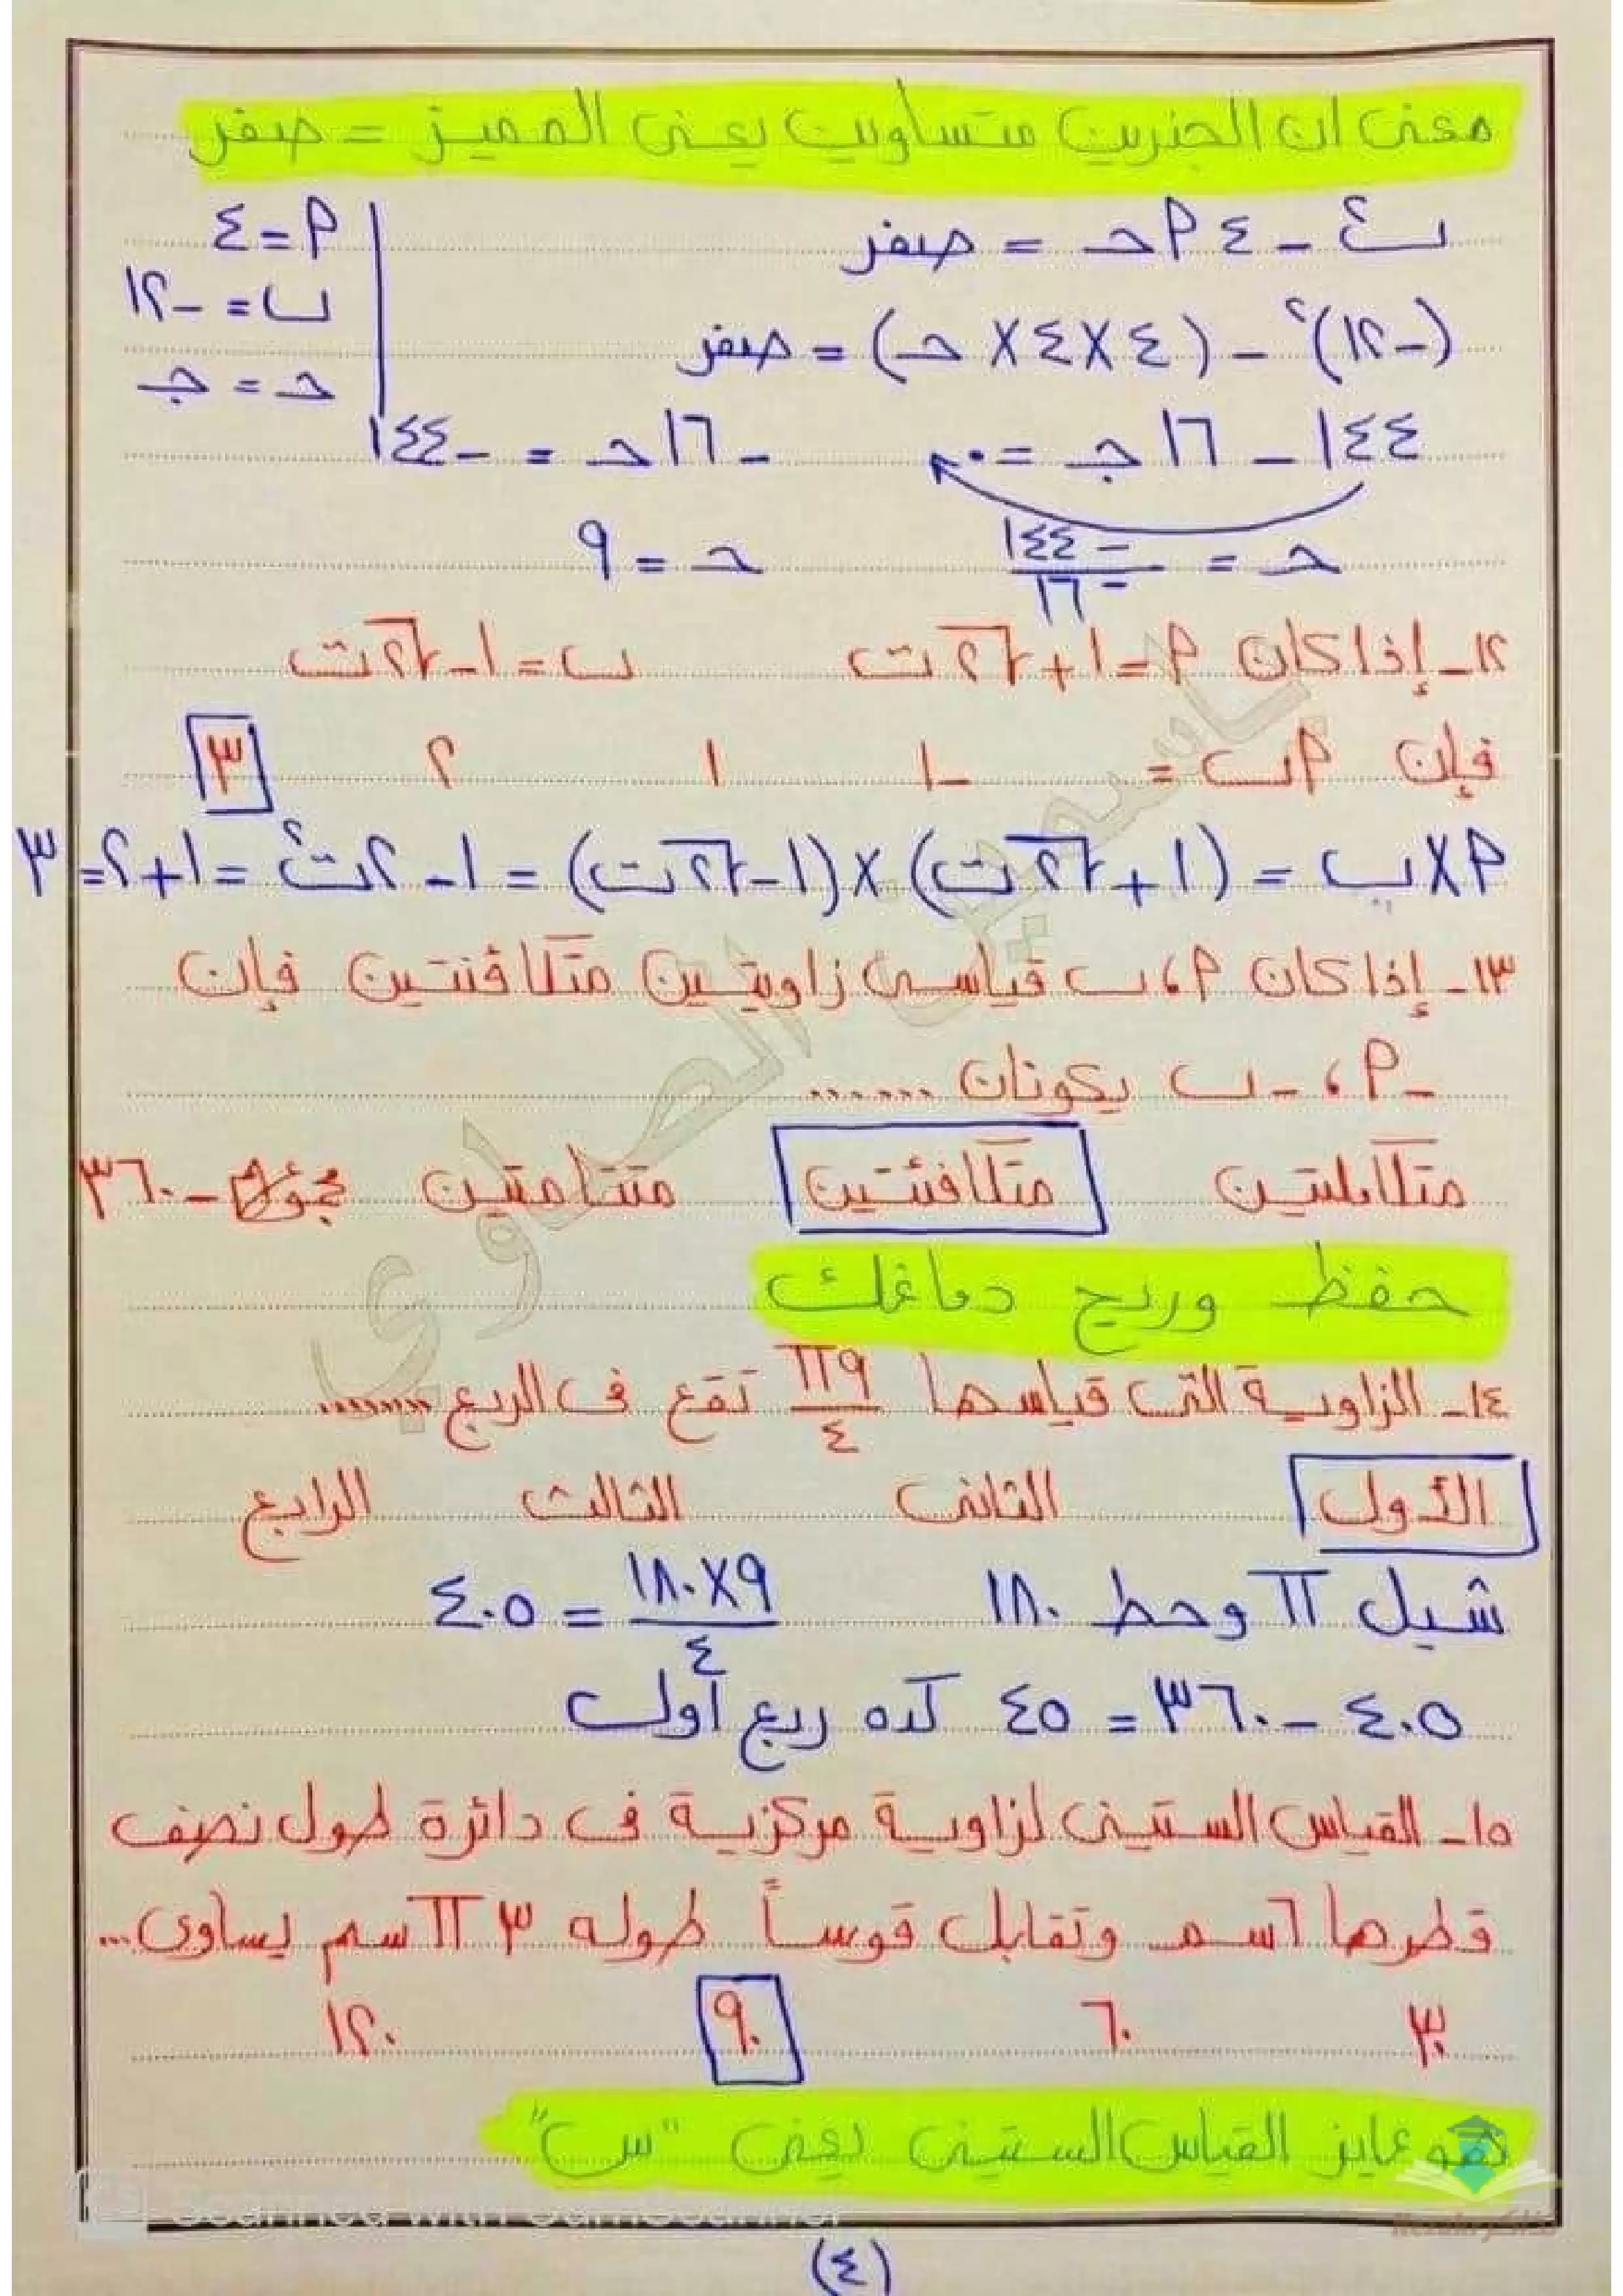 معنى ان الجذرين متساويين يعنى المميز = صفر
ب² - ٤ أ حـ = صفر
أ = ٤
ب = -١٢
حـ = جـ
(-١٢)² - (٤×٤×حـ) = صفر
١٤٤ - ١٦ جـ = ٠
-١٦ حـ = -١٤٤
حـ = -١٤٤/-١٦
حـ = ٩
١٢- إذا كان أ = ١ + √٢ ت ب = ١ - √٢ ت
فإن أ ب = -١ ١ ٢ ٣
أ×ب = (١ + √٢ ت)×(١ - √٢ ت) = ١ - ٢ت² = ١ + ٢ = ٣
١٣- إذا كان أ ، ب قياسى زاويتين متكافئتين فإن
-أ ، -ب يكونان .......
متكاملتين متكافئتين متتامتين مجموعهم -٣٦٠
حفظ وريح دماغك
١٤- الزاوية التى قياسها ٩π/٤ تقع فى الربع ........
الأول الثانى الثالث الرابع
شيل π وحط ١٨٠ ٩×١٨٠/٤ = ٤٠٥
٤٠٥ - ٣٦٠ = ٤٥ كده ربع أول
١٥- القياس الستينى لزاوية مركزية فى دائرة طول نصف
قطرها ٦ سم وتقابل قوساً طوله ٣ π سم يساوى...
٣٠ ٦٠ ٩٠ ١٢٠
هو عايز القياس الستينى يعنى "س"
Scanned with CamScanner
(٤)
ياسمين الصاوي